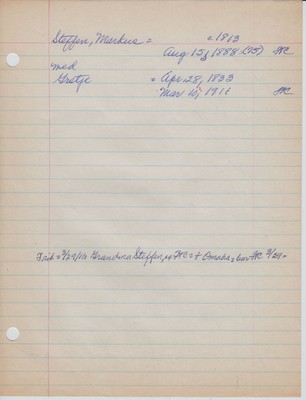 Steffen, Markus = c 1813
Aug 15, 1888 (75) HC
med
Gretje = Apr. 28, 1833
Mar 10, 1916 HC
Trib = 3/29/16 Grandma Steffen, HC = + Omaha = bur HC 3/29 =